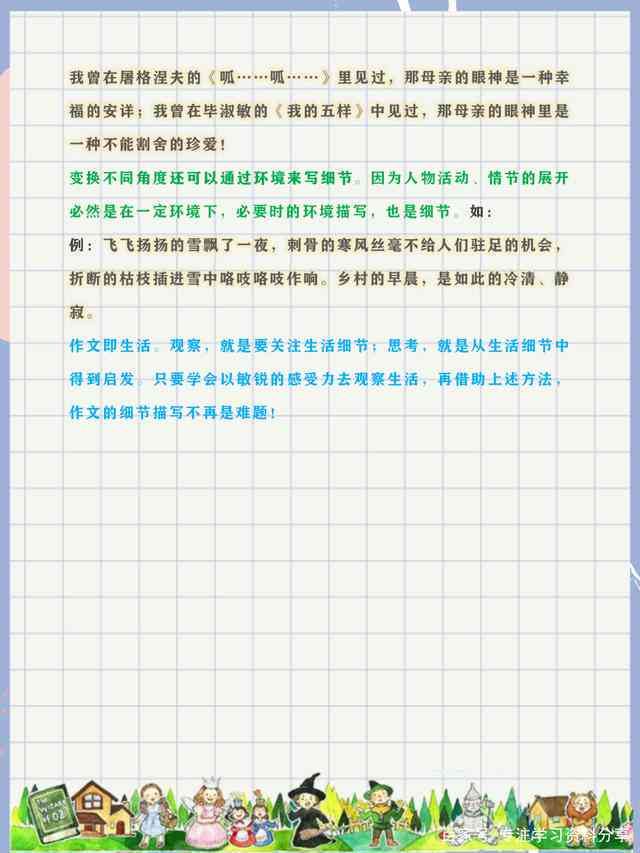 我曾在屠格涅夫的《呱……呱……》里见过，那母亲的眼神是一种幸
福的安详；我曾在毕淑敏的《我的五样》中见过，那母亲的眼神里是
一种不能割舍的珍爱！
变换不同角度还可以通过环境来写细节。因为人物活动、情节的展开
必然是在一定环境下，必要时的环境描写，也是细节。如：
例：飞飞扬扬的雪飘了一夜，刺骨的寒风丝毫不给人们驻足的机会，
折断的枯枝插进雪中咯吱咯吱作响。乡村的早晨，是如此的冷清、静
寂。
作文即生活。观察，就是要关注生活细节；思考，就是从生活细节中
得到启发。只要学会以敏锐的感受力去观察生活，再借助上述方法，
作文的细节描写不再是难题！
The
WIZARD
of OZ
专注学习资料分享